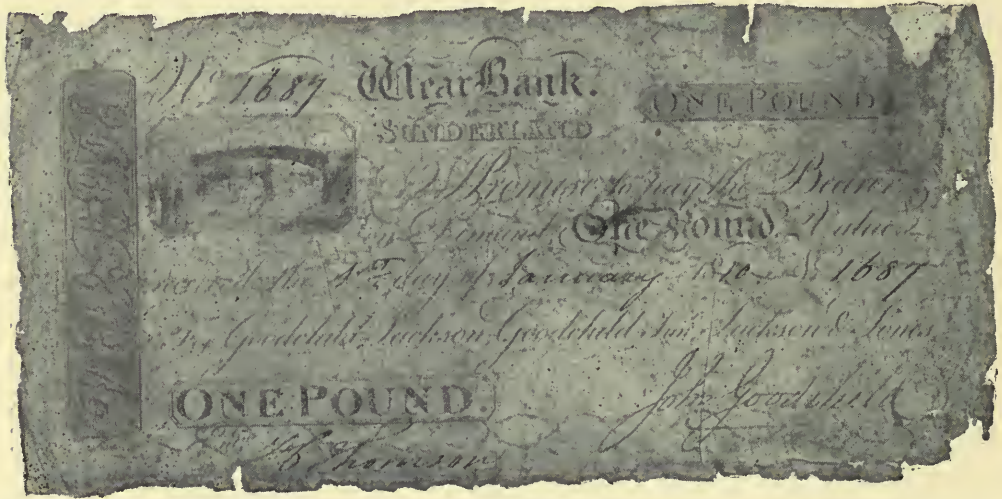 No. 1687 Wear Bank.
ONE POUND
SUNDERLAND
I Promise to pay the Bearer
on Demand One Pound Value
received the 1st day of January 1810 No. 1687
For Goodchild, Jackson, Goodchild Junr. Jackson & Co.
John Goodchild
ONE POUND.
Thomson